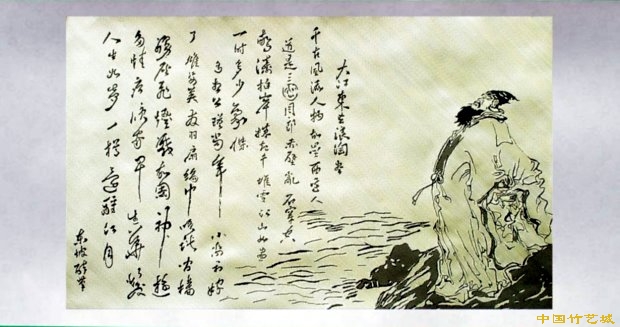 大江東去浪淘盡
千古風流人物故壘西邊人
道是三國周郎赤壁亂石穿空
驚濤拍岸捲起千堆雪江山如畫
一時多少豪傑
遙想公瑾當年小喬初嫁
了雄姿英發羽扇綸巾談笑間檣
櫓灰飛煙滅故國神遊
多情應笑我早生華髮
人生如夢一樽還酹江月
東坡醉筆
中国竹艺城